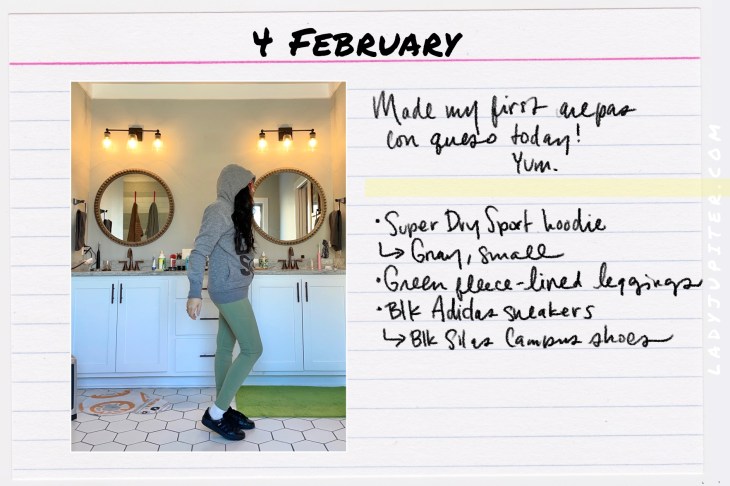 4 February
Made my first arepas
con queso today!
Yum.
• Super Dry Sport hoodie
↳ Gray, small
• Green fleece-lined leggings
• Blk Adidas sneakers
↳ Blk Silas Campus shoes
LADYJUPITER.COM